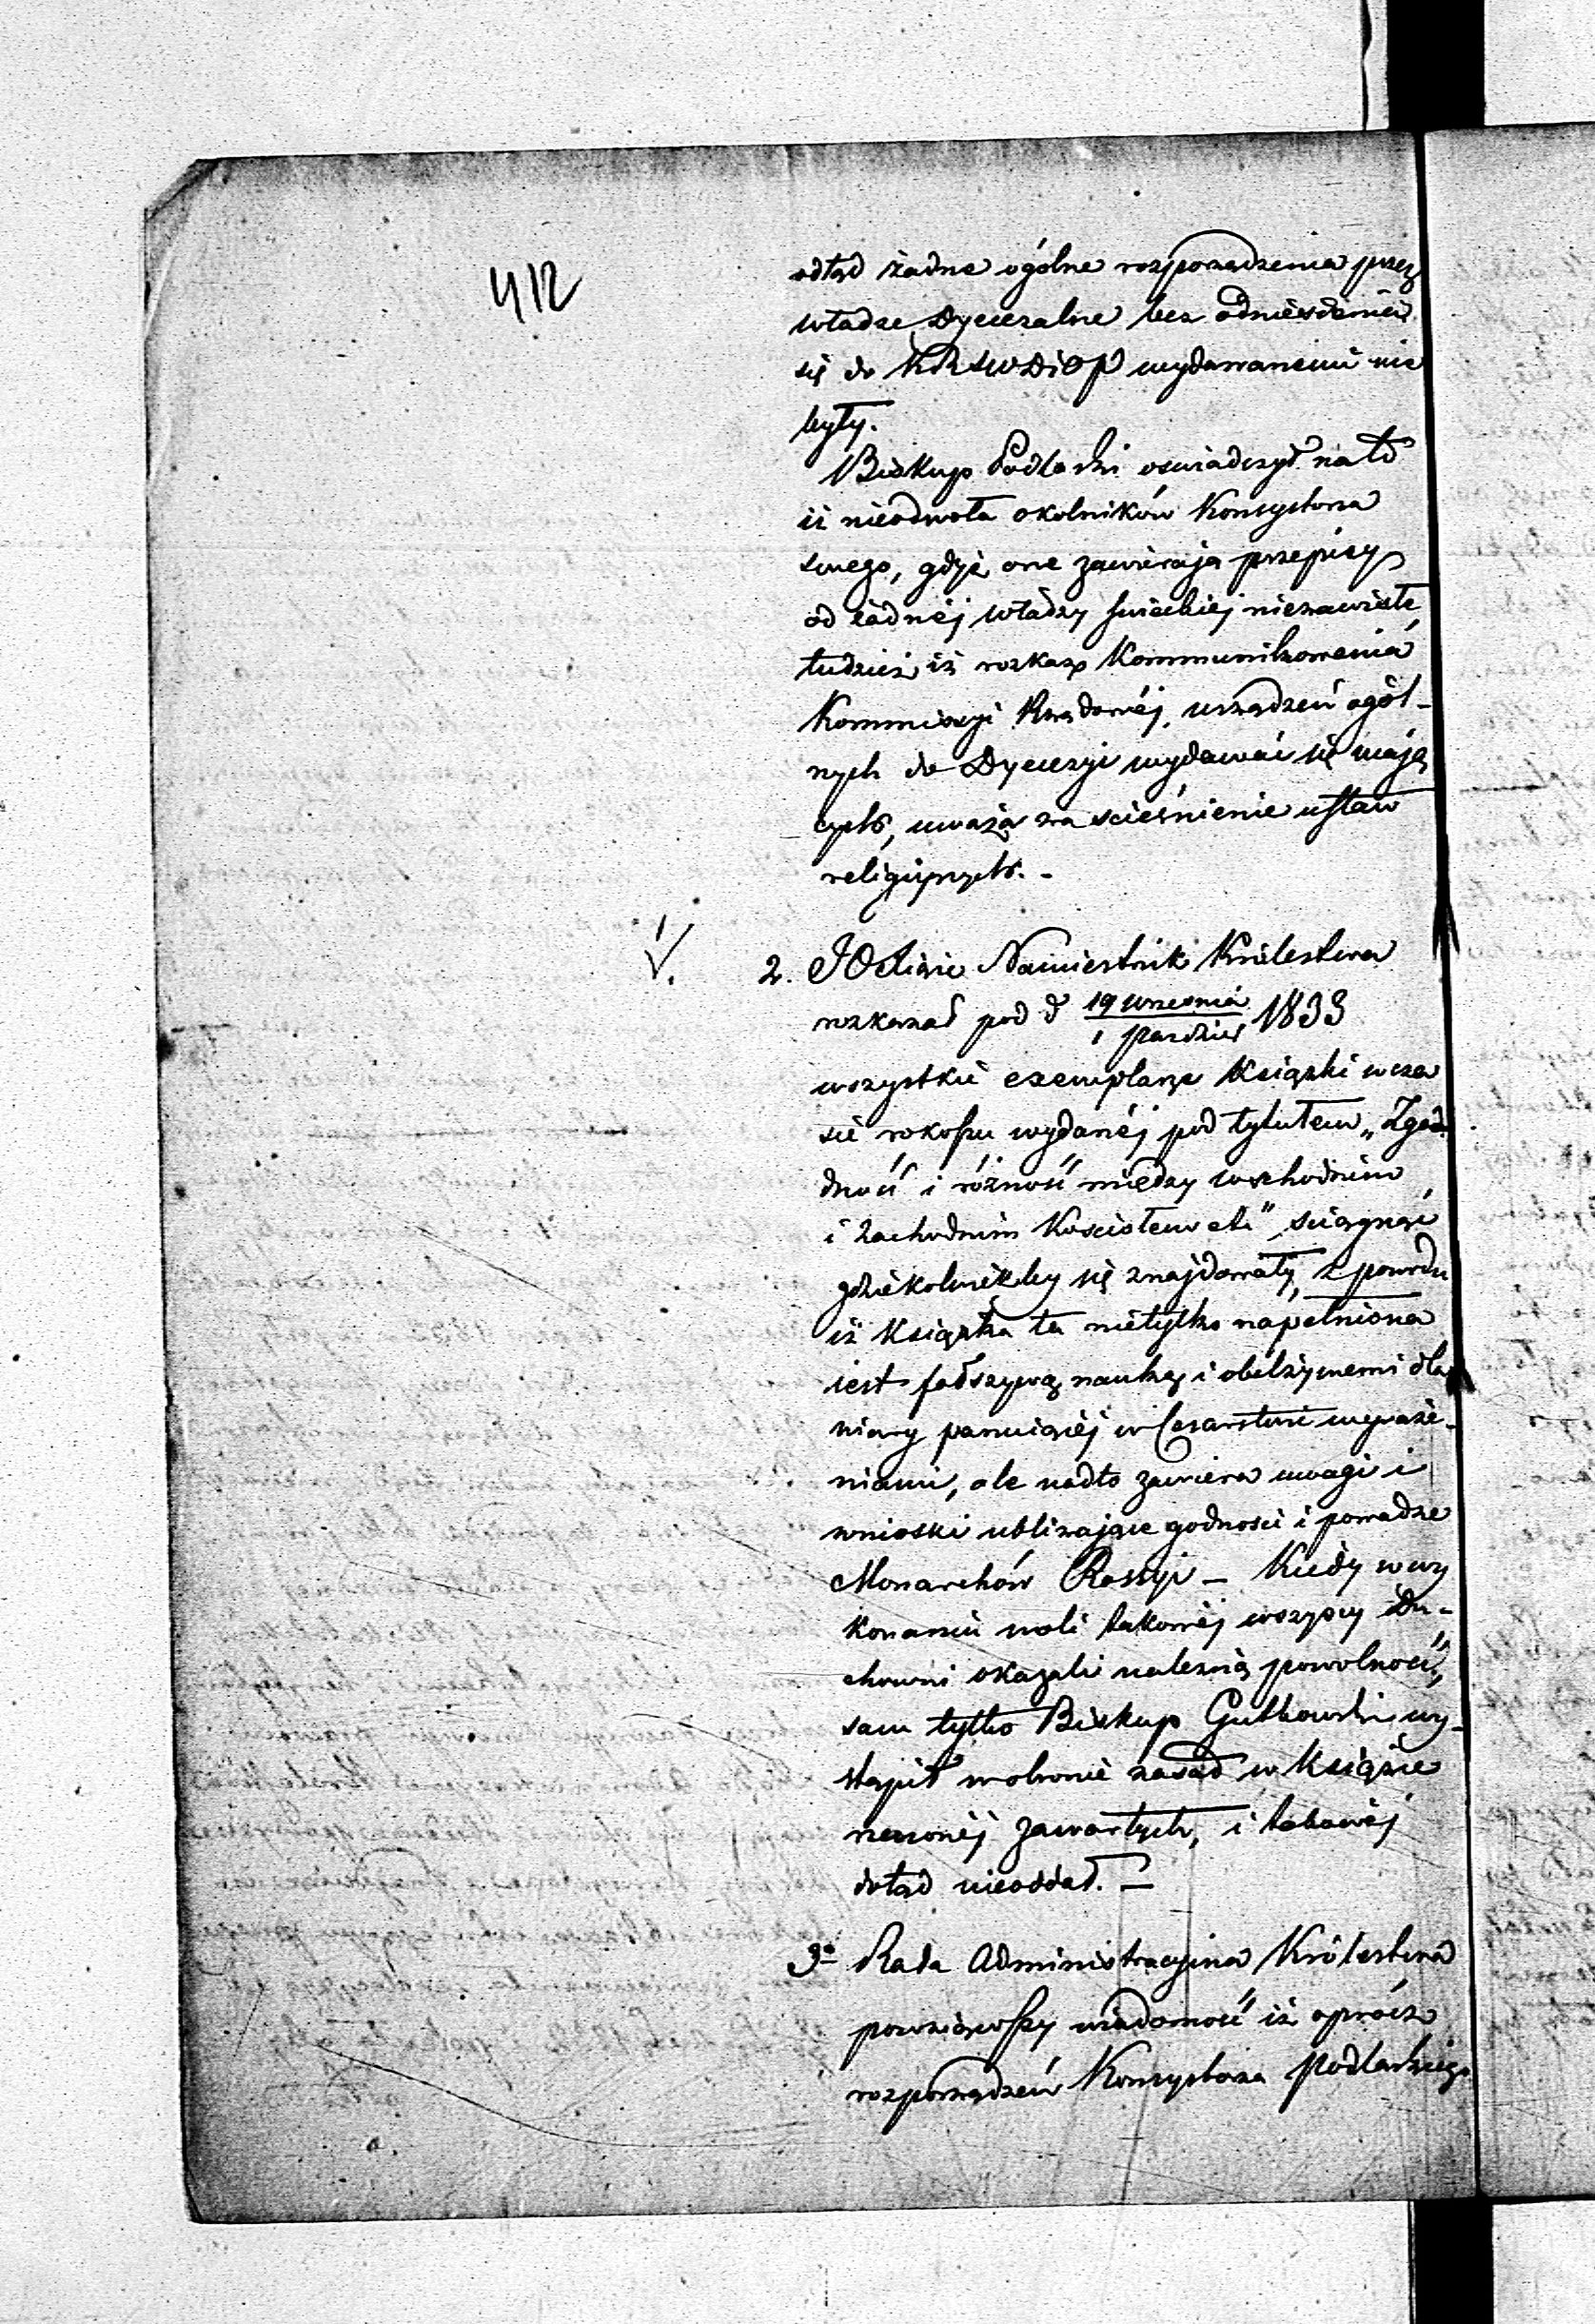 412
odtąd żadne ogólne rozporządzenia przez
władze Dyecezalne bez odniesienia
się do KRSWDiOP wydawanemi nie
były.
Biskup Podlaski oświadczył na to
iż nieodwoła okolników Konsystorza
swego, gdyż one zawierają przepisy
od żadnéj władzy świeckiej niezawisłe
tudzież iż rozkaz Kommunikowania
Kommissyi Rządowéj, urządzeń ogól-
nych do Dyecezyi wydawać się mają
cych, uważa za ścieśnienie ustaw
religijnych. -
V.
2. JO Xiąże Namiestnik Królestwa
rozkazał pod d 19 września / 1 paździer 1833
wszystkie exemplarze Książki w cza
sie rokoszu wydanéj pod tytułem „Zgo-
dność i różność między wschodnim
i zachodnim Kościołem etc" ściągnąć
gdziekolwiekby się znajdowały, z powodu
iż Książka ta nietylko napełniona
iest fałszywą nauką i obelżywemi dla
wiary panuiącéj w Cesarstwie wyraże-
niami, ale nadto zawiera uwagi i
wnioski ubliżające godności i powadze
Monarchów Rossyi - Kiedy w wy
konaniu woli takowéj wszyscy Du-
chowni okazali należną powolność,
sam tylko Biskup Gutkowski wy-
stąpił w obronie zasad w Książce
rzeczonéj zawartych, i takowéj
dotąd nieoddał. -
3o Rada Administracyjna Królestwa
powziąwszy wiadomość iż oprócz
rozporządzeń Konsystorza Podlaskiego